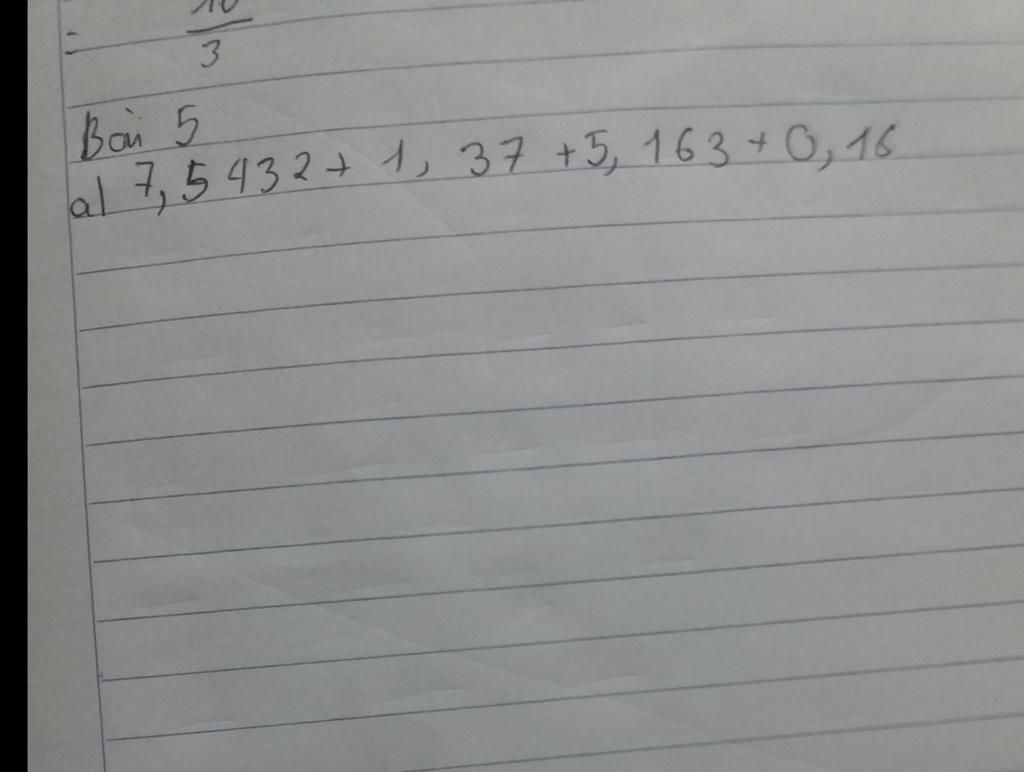 = 10/3
Bài 5
a) 7,5432 + 1, 37 + 5, 163 + 0, 16